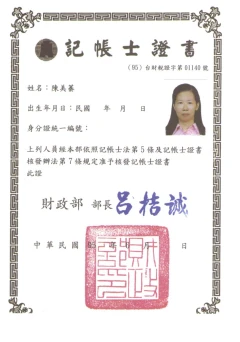 記帳士證書
(95)台財稅證字第01140號
姓名：陳美蓁
出生年月日：民國 年 月 日
身分證統一編號：
上列人員經本部依照記帳士法第5條及記帳士證書
核發辦法第7條規定准予核發記帳士證書
此證
財政部 部長 呂桔誠
中華民國 年 月 日